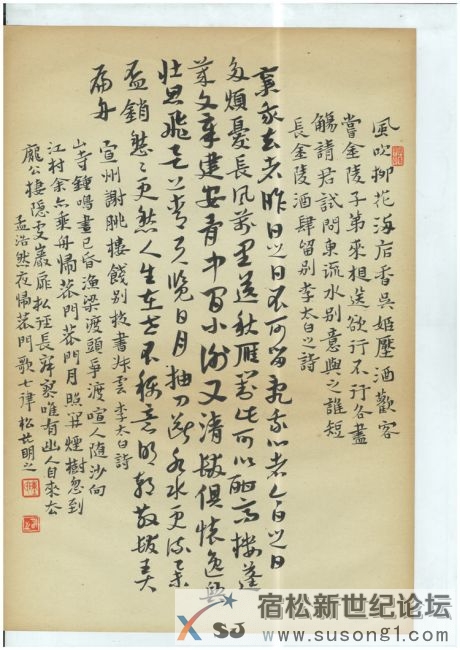 風吹柳花滿店香吳姬壓酒勸客
嘗金陵子弟來相送欲行不行各盡
觴請君試問東流水別意與之誰短
長金陵酒肆留別李太白之詩
棄我去者昨日之日不可留亂我心者今日之日
多煩憂長風萬里送秋雁對此可以酣高樓蓬
萊文章建安骨中間小謝又清發俱懷逸興
壯思飛欲上青天覽日月抽刀斷水水更流舉
盃銷愁愁更愁人生在世不稱意明朝散髮弄
扁舟
宣州謝朓樓餞別校書叔雲李太白詩
山寺鐘鳴晝已昏漁梁渡頭爭渡喧人隨沙向
江村余亦乘舟歸鹿門鹿門月照開煙樹忽到
龐公棲隱處巖扉松徑長寂寥唯有幽人自來去
孟浩然夜歸鹿門歌七律
SJ
宿松新世纪论坛
www.susong1.com